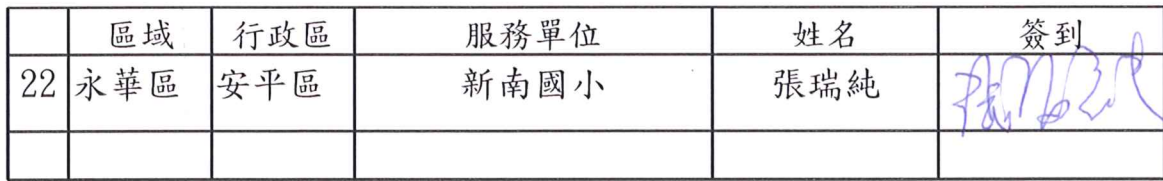 區域 行政區 服務單位 姓名 簽到
22 永華區 安平區 新南國小 張瑞純